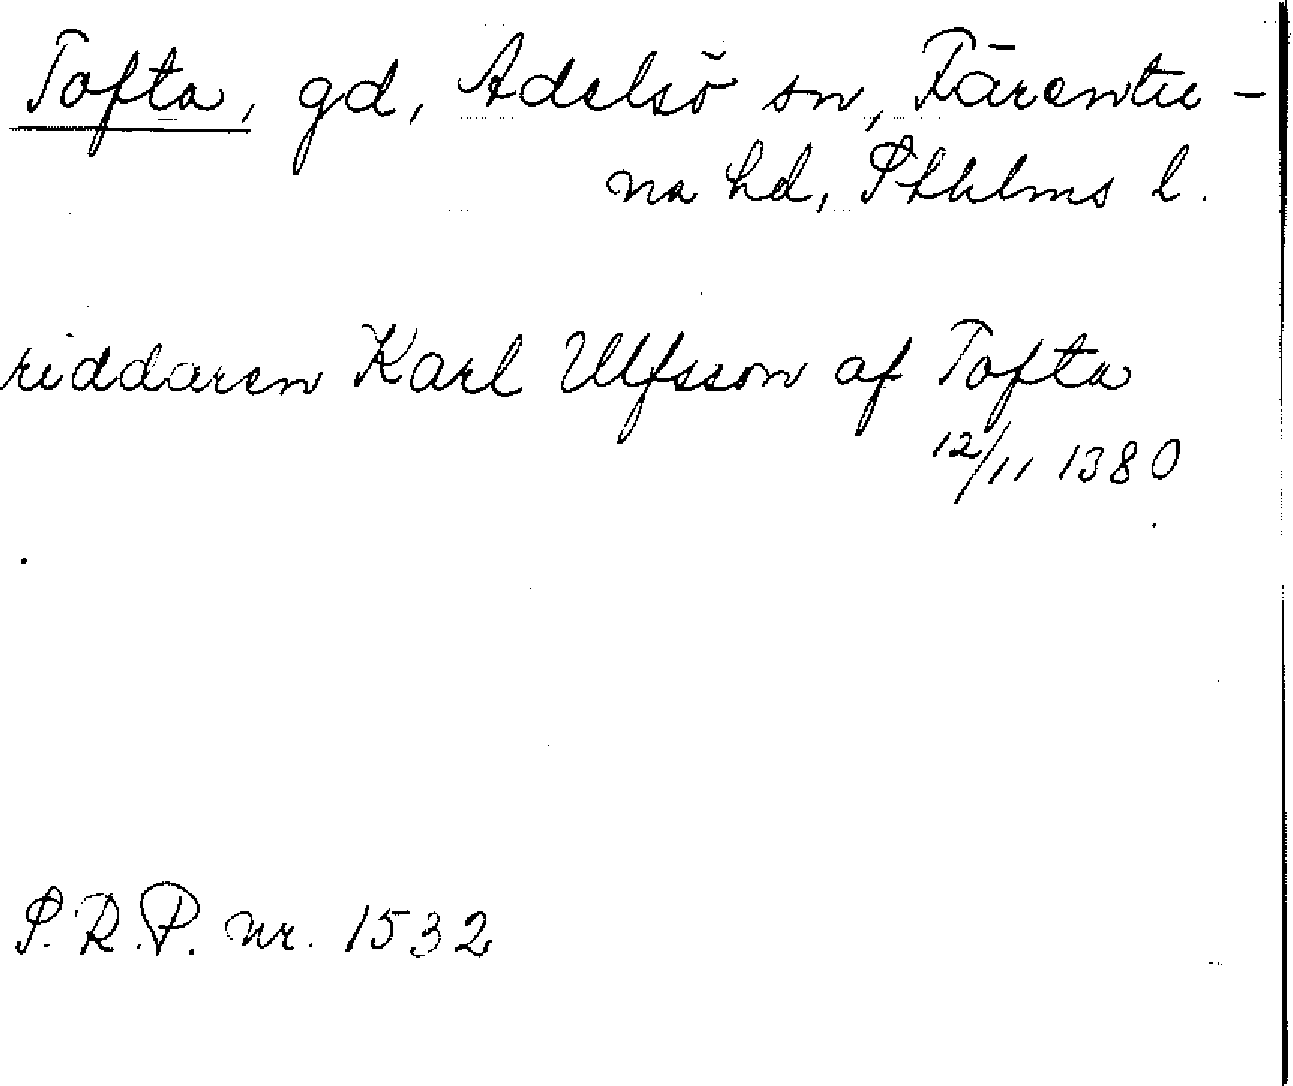 Tofta, gd, Adelsö sn, Färentu-
na hd, Sthlms l.
riddaren Karl Ulfsson af Tofta
12/11 1380
S.R.P. nr. 1532